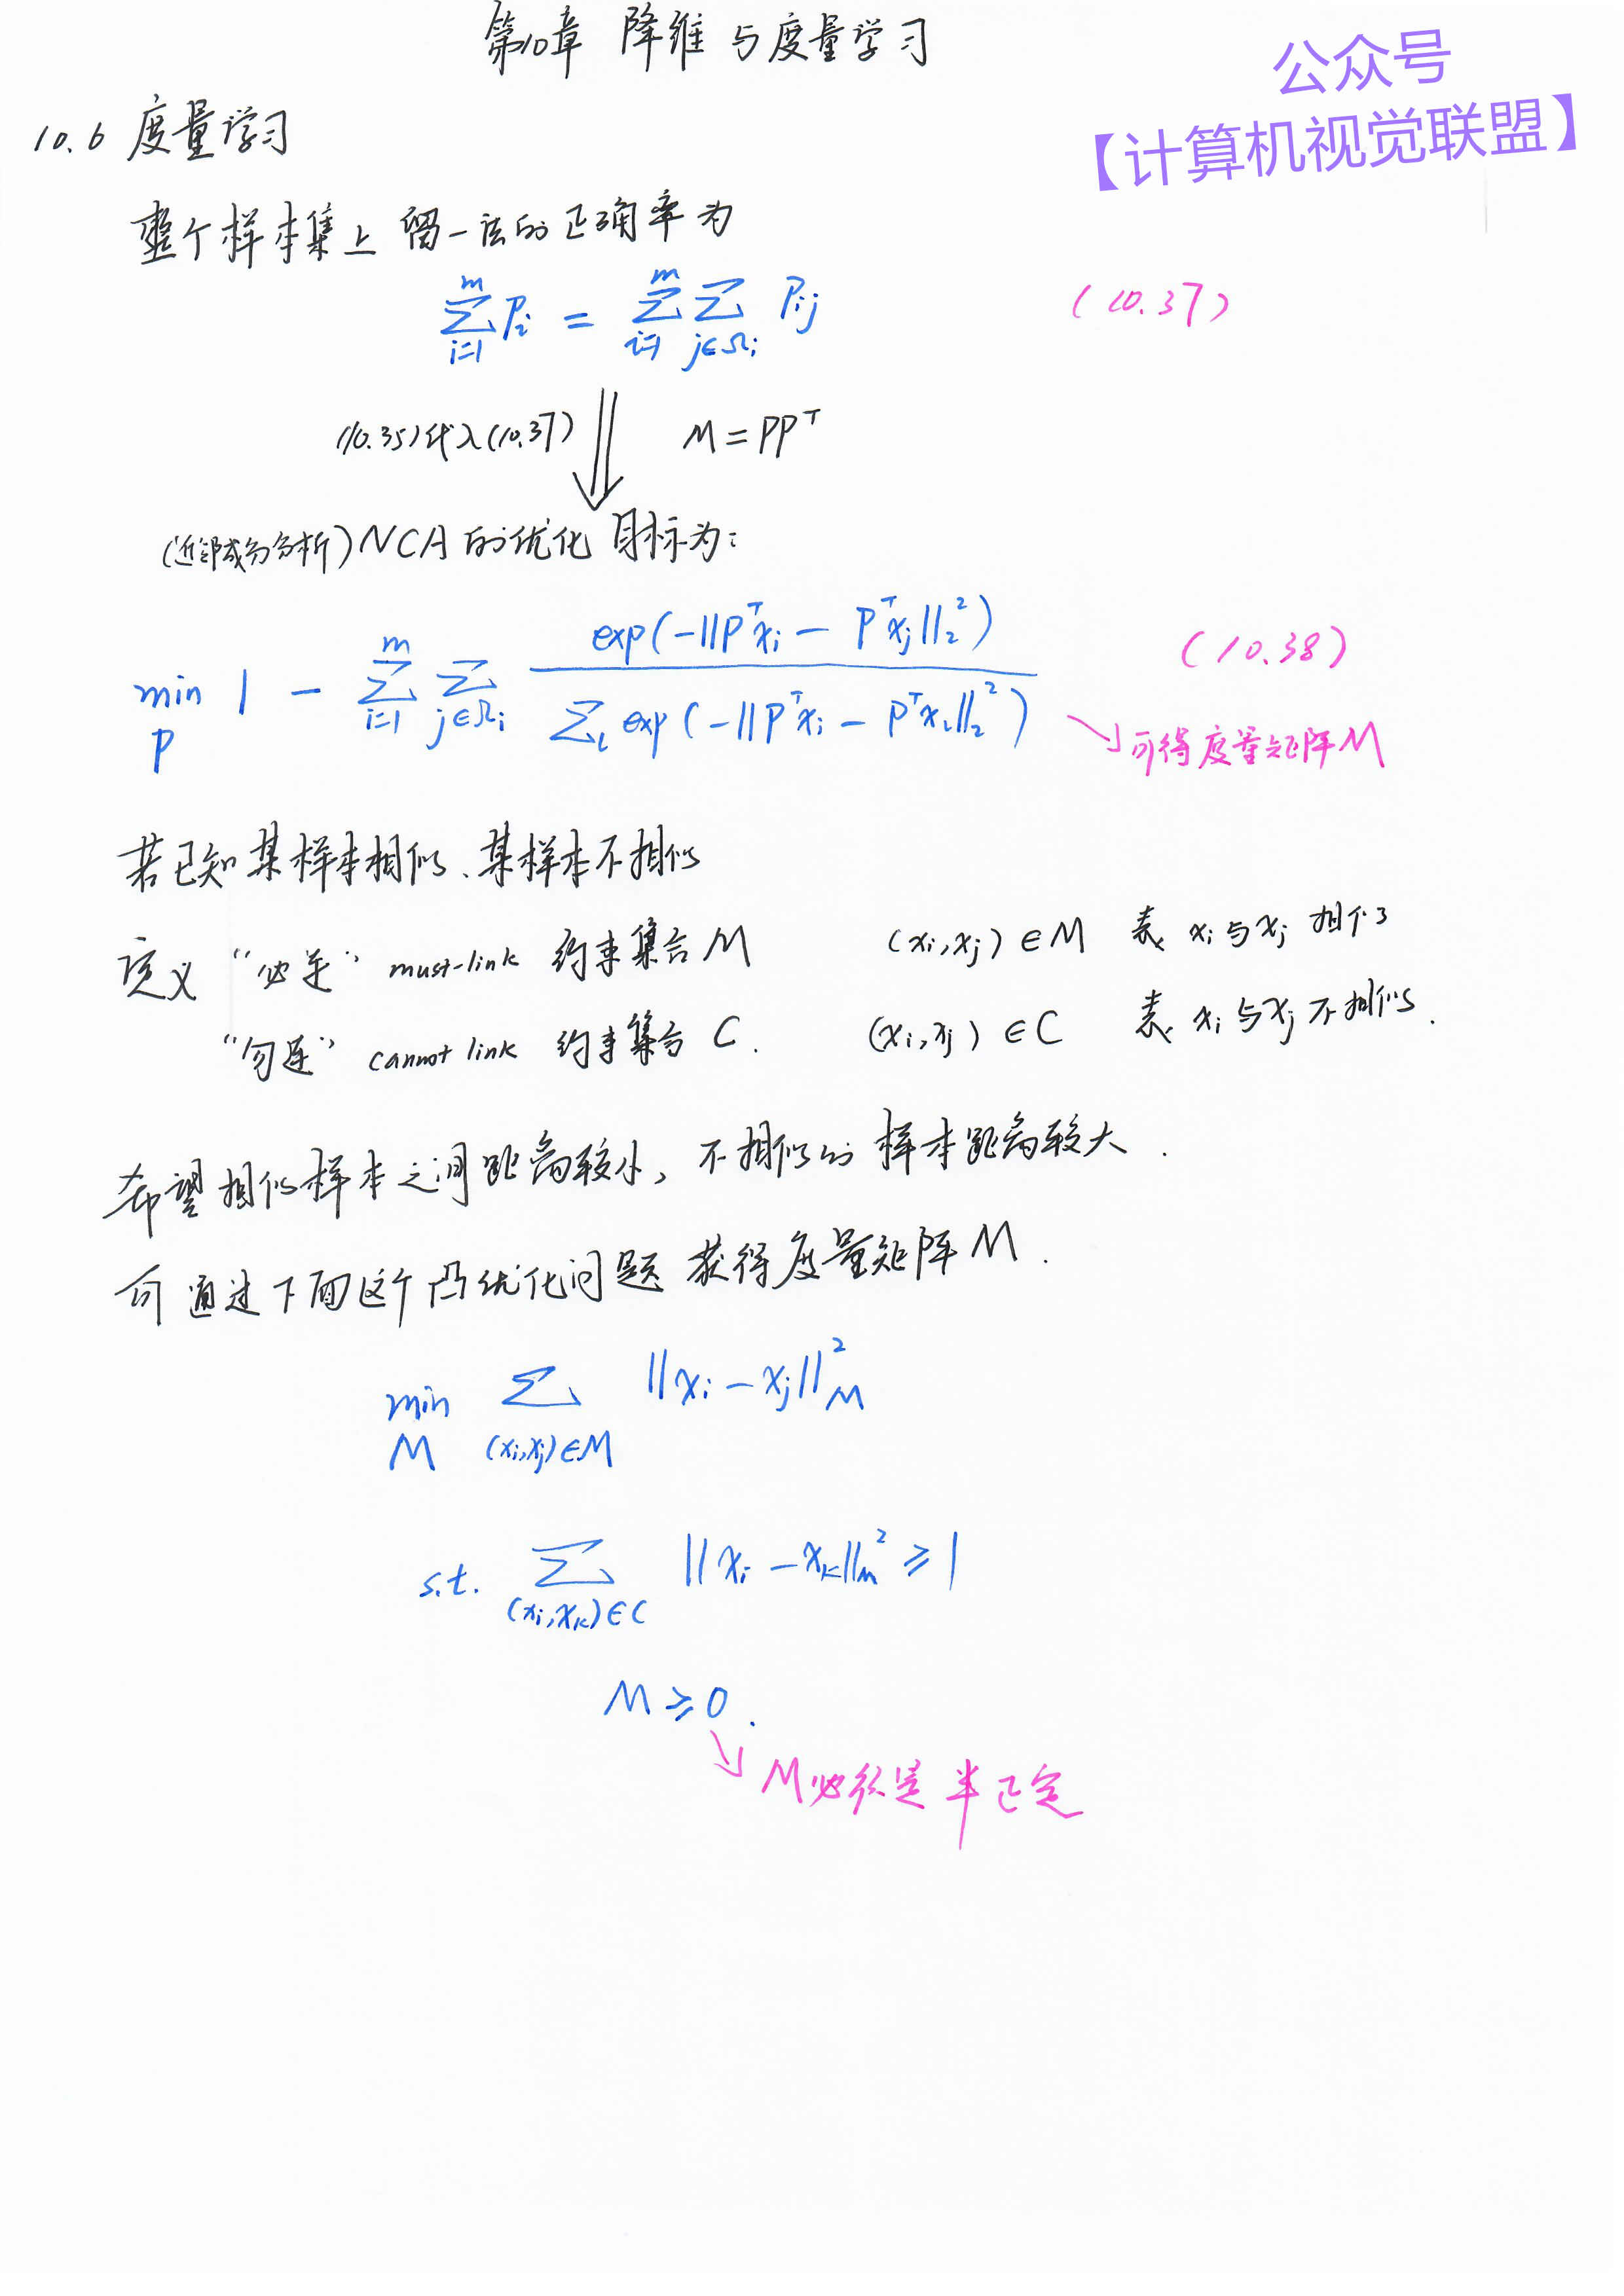 第10章 降维与度量学习
公众号
【计算机视觉联盟】
10.6 度量学习
整个样本集上留一法的正确率为
\sum_{i=1}^{m} P_i = \sum_{i=1}^{m} \sum_{j∈Ω_i} P_{ij} (10.37)
(10.35)代入(10.37) ⇓ M = PP^T
(近邻成分分析) NCA的优化目标为:
\min_P 1 - \sum_{i=1}^{m} \sum_{j∈Ω_i} \frac{exp(-||P^T x_i - P^T x_j||_2^2)}{\sum_l exp(-||P^T x_i - P^T x_l||_2^2)} (10.38)
↘可得度量矩阵M
若已知某样本相似、某样本不相似
定义 "必连" must-link 约束集合 M (x_i, x_j) ∈ M 表 x_i 与 x_j 相似
"勿连" cannot link 约束集合 C. (x_i, x_j) ∈ C 表 x_i 与 x_j 不相似.
希望相似样本之间距离较小, 不相似的样本距离较大.
可通过下面这个凸优化问题获得度量矩阵M.
\min_M \sum_{(x_i,x_j)∈M} ||x_i - x_j||_M^2
s.t. \sum_{(x_i,x_k)∈C} ||x_i - x_k||_M^2 ≥ 1
M ≥ 0.
↘M必须是半正定